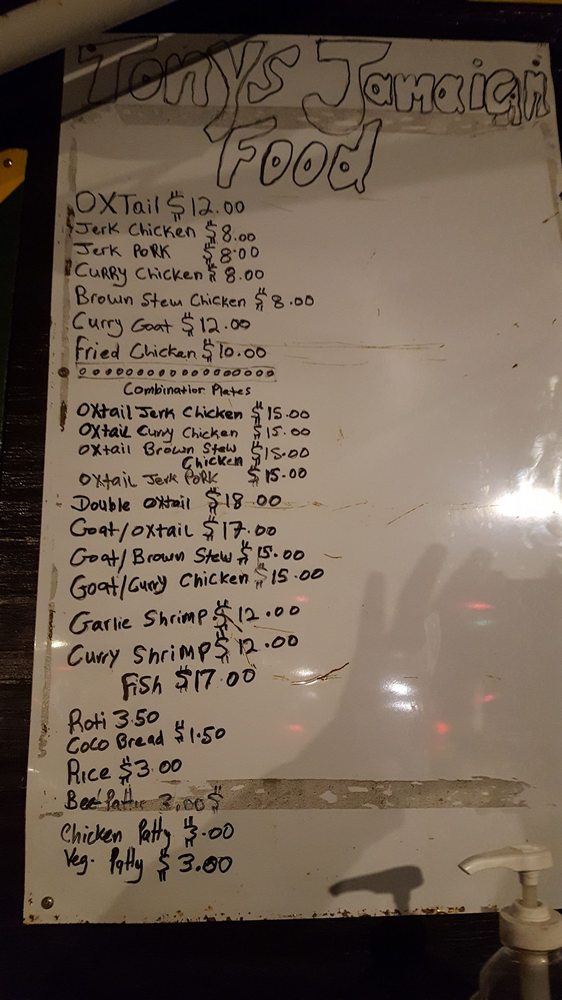 Tonys Jamaican
Food
OXTail $12.00
Jerk Chicken $8.00
Jerk PORK $8.00
CURRY Chicken $8.00
Brown Stew Chicken $8.00
Curry Goat $12.00
Fried Chicken $10.00
Combination Plates
OXtail Jerk Chicken $15.00
OXtail Curry Chicken $15.00
OXtail Brown Stew $15.00
Chicken
OXtail Jerk PORK $15.00
Double OXtail $18.00
Goat/OXtail $17.00
Goat/Brown Stew $15.00
Goat/Curry Chicken $15.00
Garlic Shrimp $12.00
Curry ShRiMP $12.00
FiSh $17.00
Roti 3.50
Coco Bread $1.50
Rice $3.00
Beef Pattie 3.00$
Chicken Patty .00
Veg. Patty $3.00